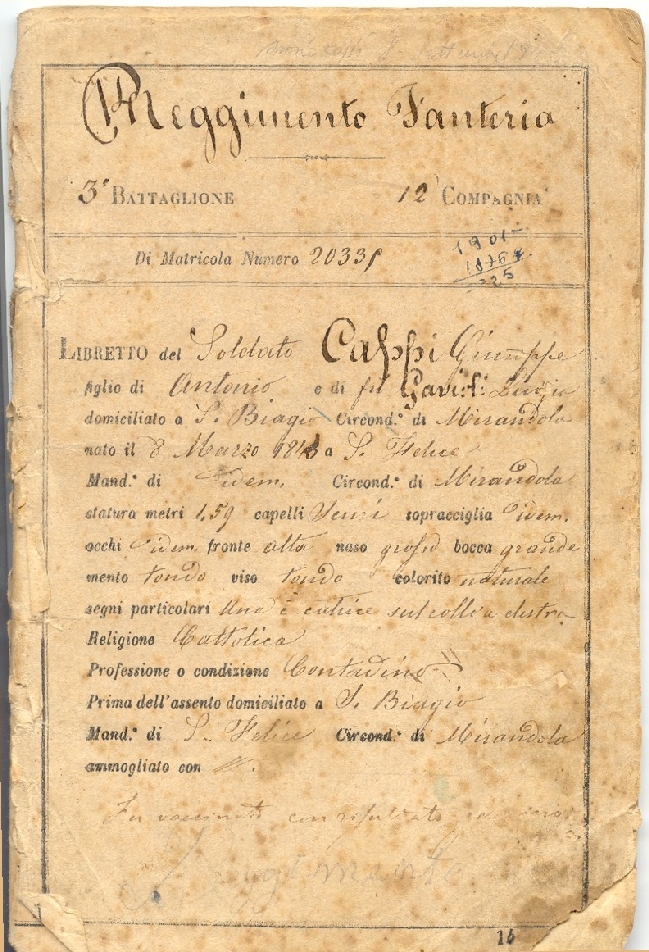 Reggimento Fanteria
3° BATTAGLIONE 12 COMPAGNIA
Di Matricola Numero 2033
1901
LIBRETTO del Soldato Cappi Giuseppe
figlio di Antonio e di fu Gavioli Luigia
domiciliato a S. Biagio Circond.° di Mirandola
nato il 8 Marzo a S. Felice
Mand.° di Idem. Circond.° di Mirandola
statura metri 1,59 capelli Neri sopracciglia idem.
occhi idem fronte alta naso grosso bocca grande
mento tondo viso tondo colorito naturale
segni particolari Una cicatrice sul collo a destra
Religione Cattolica
Professione o condizione Contadino
Prima dell'assento domiciliato a S. Biagio
Mand.° di S. Felice Circond.° di Mirandola
ammogliato con
Fu vaccinato con risultato